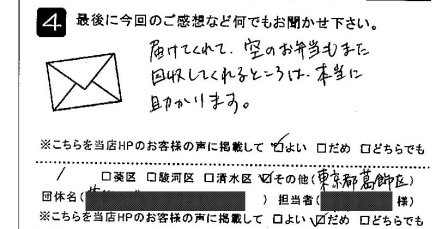 4 最後に今回のご感想など何でもお聞かせ下さい。
届けてくれて、空のお弁当もまた
回収してくれるところは、本当に
助かります。
※こちらを当店HPのお客様の声に掲載して ☑よい □だめ □どちらでも
□葵区 □駿河区 □清水区 ☑その他(東京都葛飾区)
団体名( ) 担当者( 様)
※こちらを当店HPのお客様の声に掲載して □よい ☑だめ □どちらでも